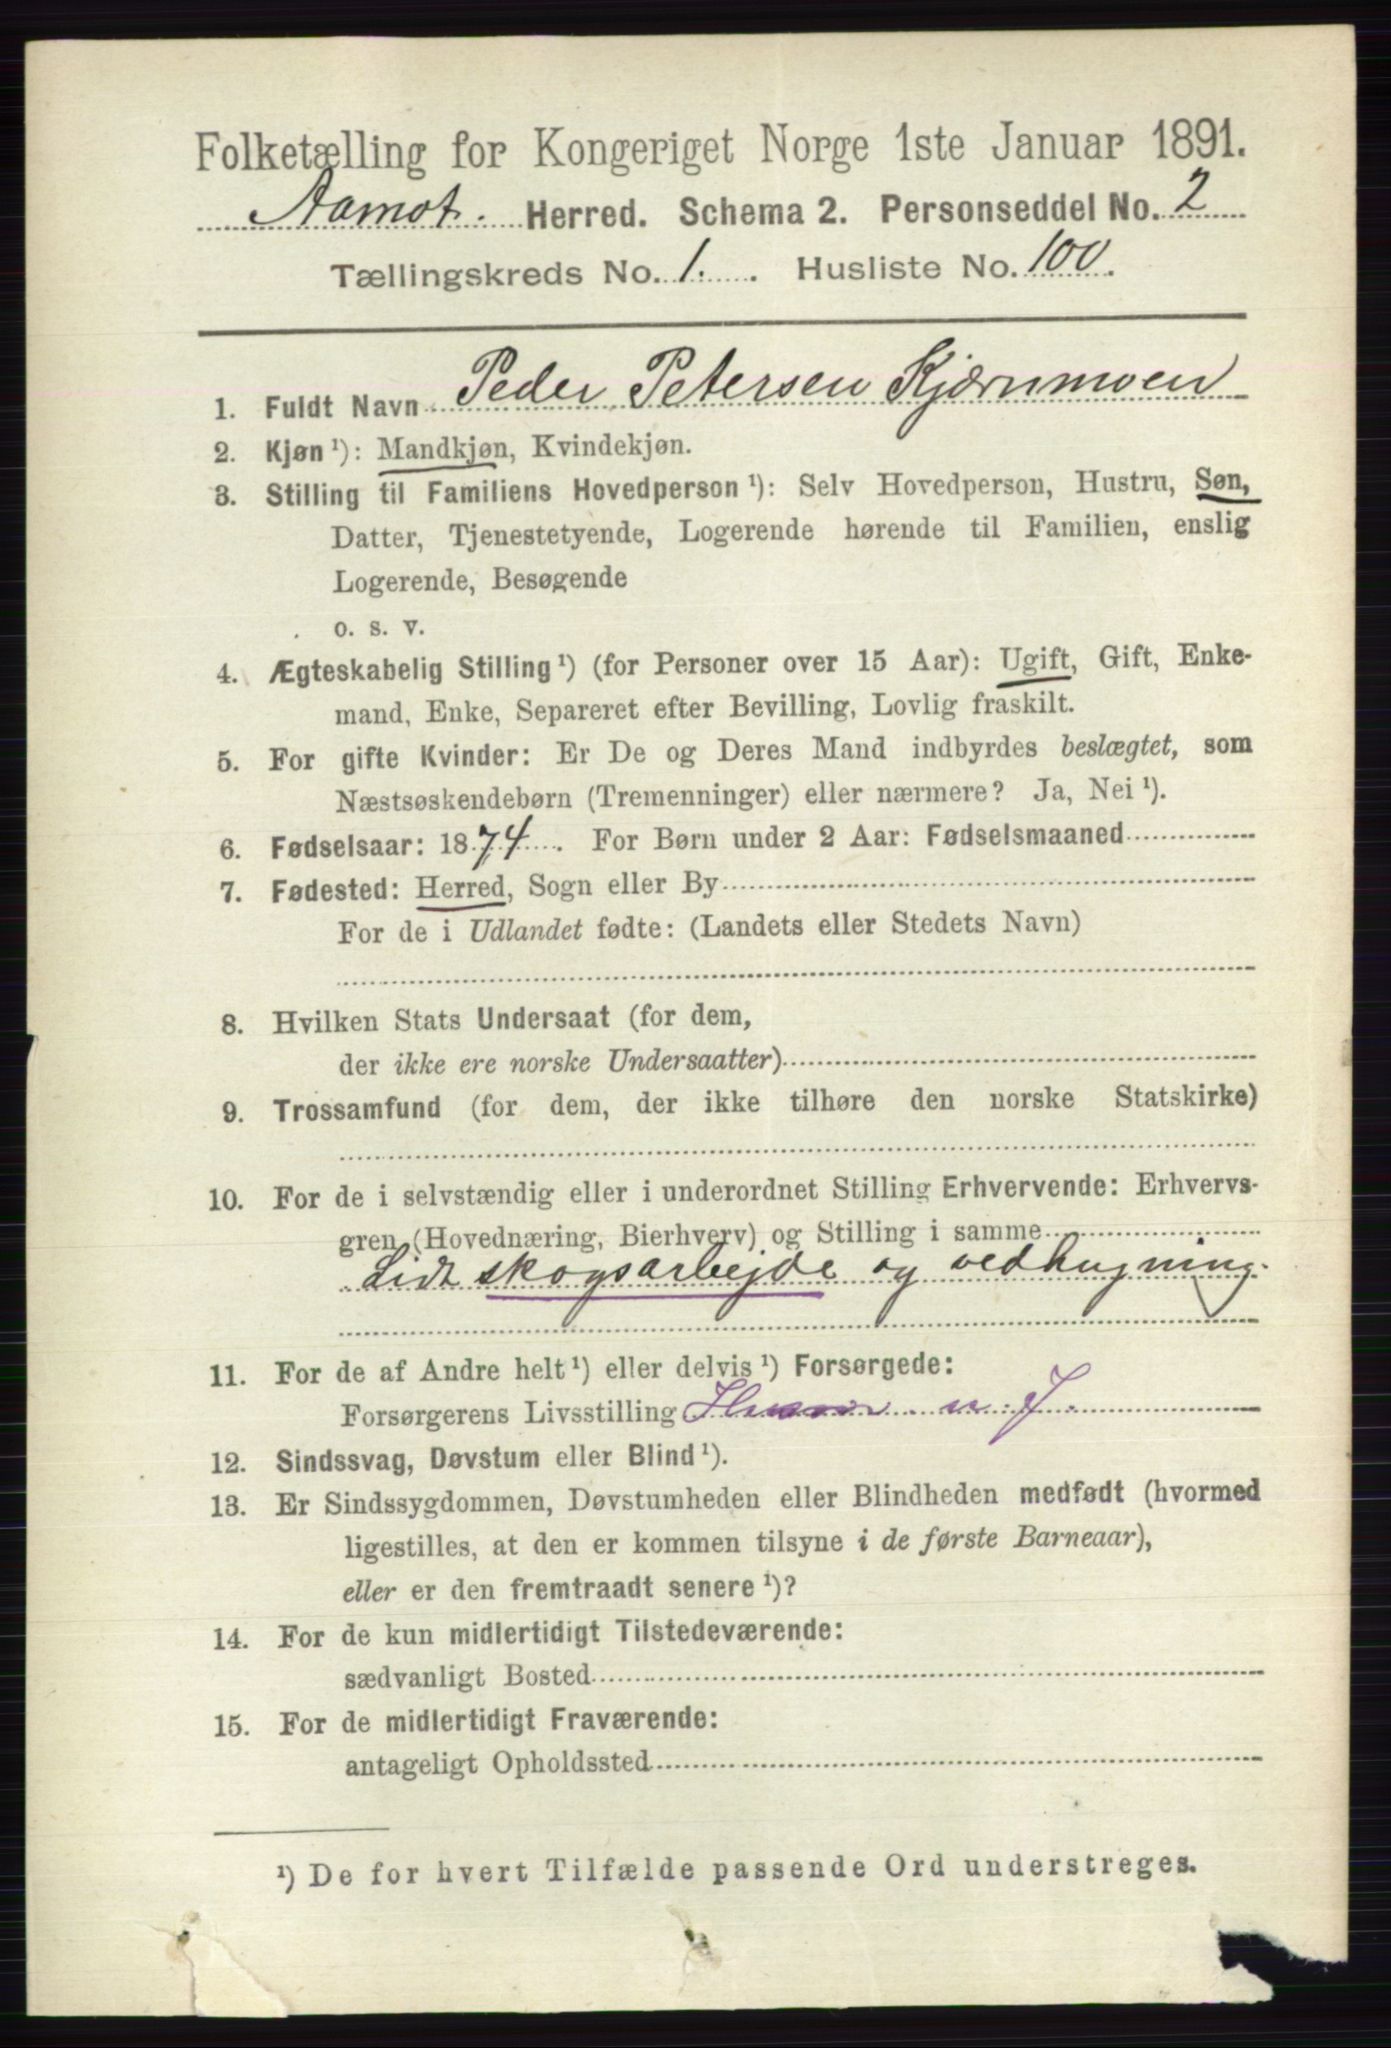 Folketælling for Kongeriget Norge 1ste Januar 1891.
Aamot. Herred. Schema 2. Personseddel No. 2
Tællingskreds No. 1. Husliste No. 100.
1. Fuldt Navn Peder Petersen Kjærnmoen
2. Kjøn ¹): Mandkjøn, Kvindekjøn.
3. Stilling til Familiens Hovedperson ¹): Selv Hovedperson, Hustru, Søn,
Datter, Tjenestetyende, Logerende hørende til Familien, enslig
Logerende, Besøgende
o. s. v.
4. Ægteskabelig Stilling ¹) (for Personer over 15 Aar): Ugift, Gift, Enke-
mand, Enke, Separeret efter Bevilling, Lovlig fraskilt.
5. For gifte Kvinder: Er De og Deres Mand indbyrdes beslægtet, som
Næstsøskendebørn (Tremenninger) eller nærmere? Ja, Nei ¹).
6. Fødselsaar: 1874. For Børn under 2 Aar: Fødselsmaaned
7. Fødested: Herred, Sogn eller By
For de i Udlandet fødte: (Landets eller Stedets Navn)
8. Hvilken Stats Undersaat (for dem,
der ikke ere norske Undersaatter)
9. Trossamfund (for dem, der ikke tilhøre den norske Statskirke)
10. For de i selvstændig eller i underordnet Stilling Erhvervende: Erhvervs-
gren (Hovednæring, Bierhverv) og Stilling i samme
Lidt skogsarbejde og vedhugning.
11. For de af Andre helt ¹) eller delvis ¹) Forsørgede:
Forsørgerens Livsstilling
12. Sindssvag, Døvstum eller Blind ¹).
13. Er Sindssygdommen, Døvstumheden eller Blindheden medfødt (hvormed
ligestilles, at den er kommen tilsyne i de første Barneaar),
eller er den fremtraadt senere ¹)?
14. For de kun midlertidigt Tilstedeværende:
sædvanligt Bosted
15. For de midlertidigt Fraværende:
antageligt Opholdssted
¹) De for hvert Tilfælde passende Ord understreges.